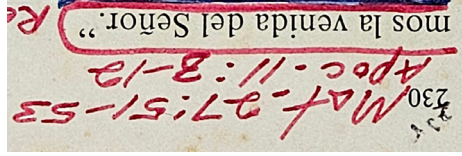 230 Mat-27:51-53
Apoc-11:3-12
mos la venida del Señor.”